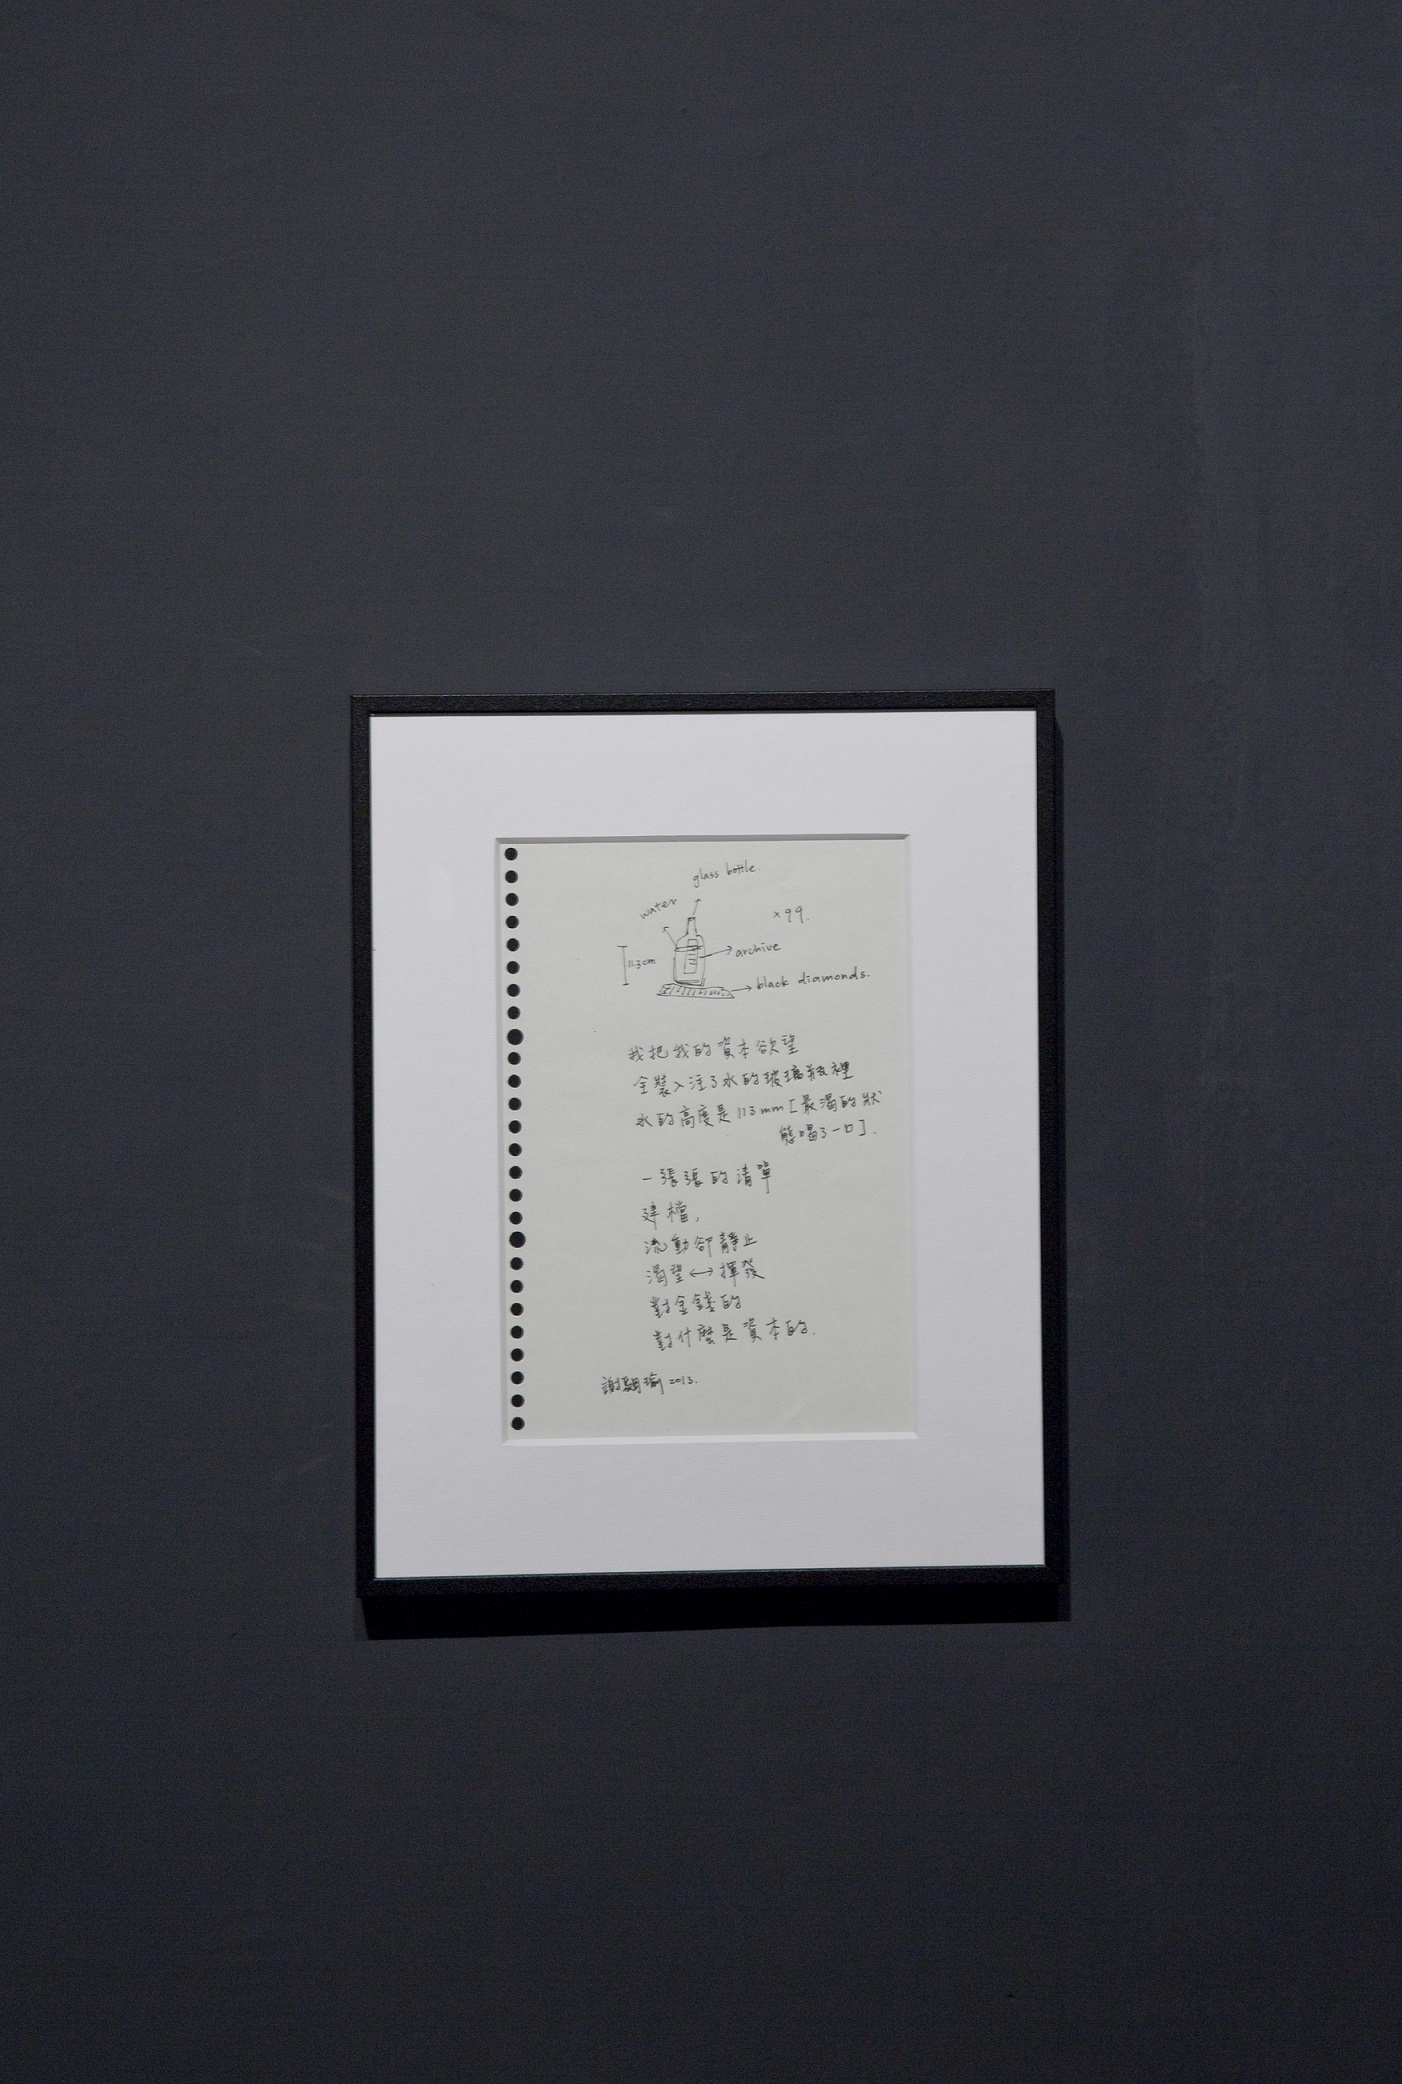 glass bottle.
water
×99.
11.3cm
archive
black diamonds.
我把我的資本慾望
全裝入注了水的玻璃瓶裡
水的高度是113mm [最渴的狀
態喝了一口].
一張張的清單
建檔,
流動卻靜止
渴望↔揮發
對金錢的
對什麼是資本的.
謝 瑜 2013.